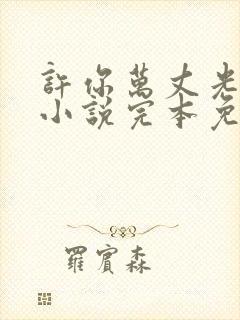 許你萬丈光
小說完本免
羅賓森